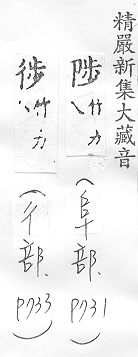 精嚴新集大藏音
陟竹力
(阜部.p731)
徏竹力
(彳部.p733)